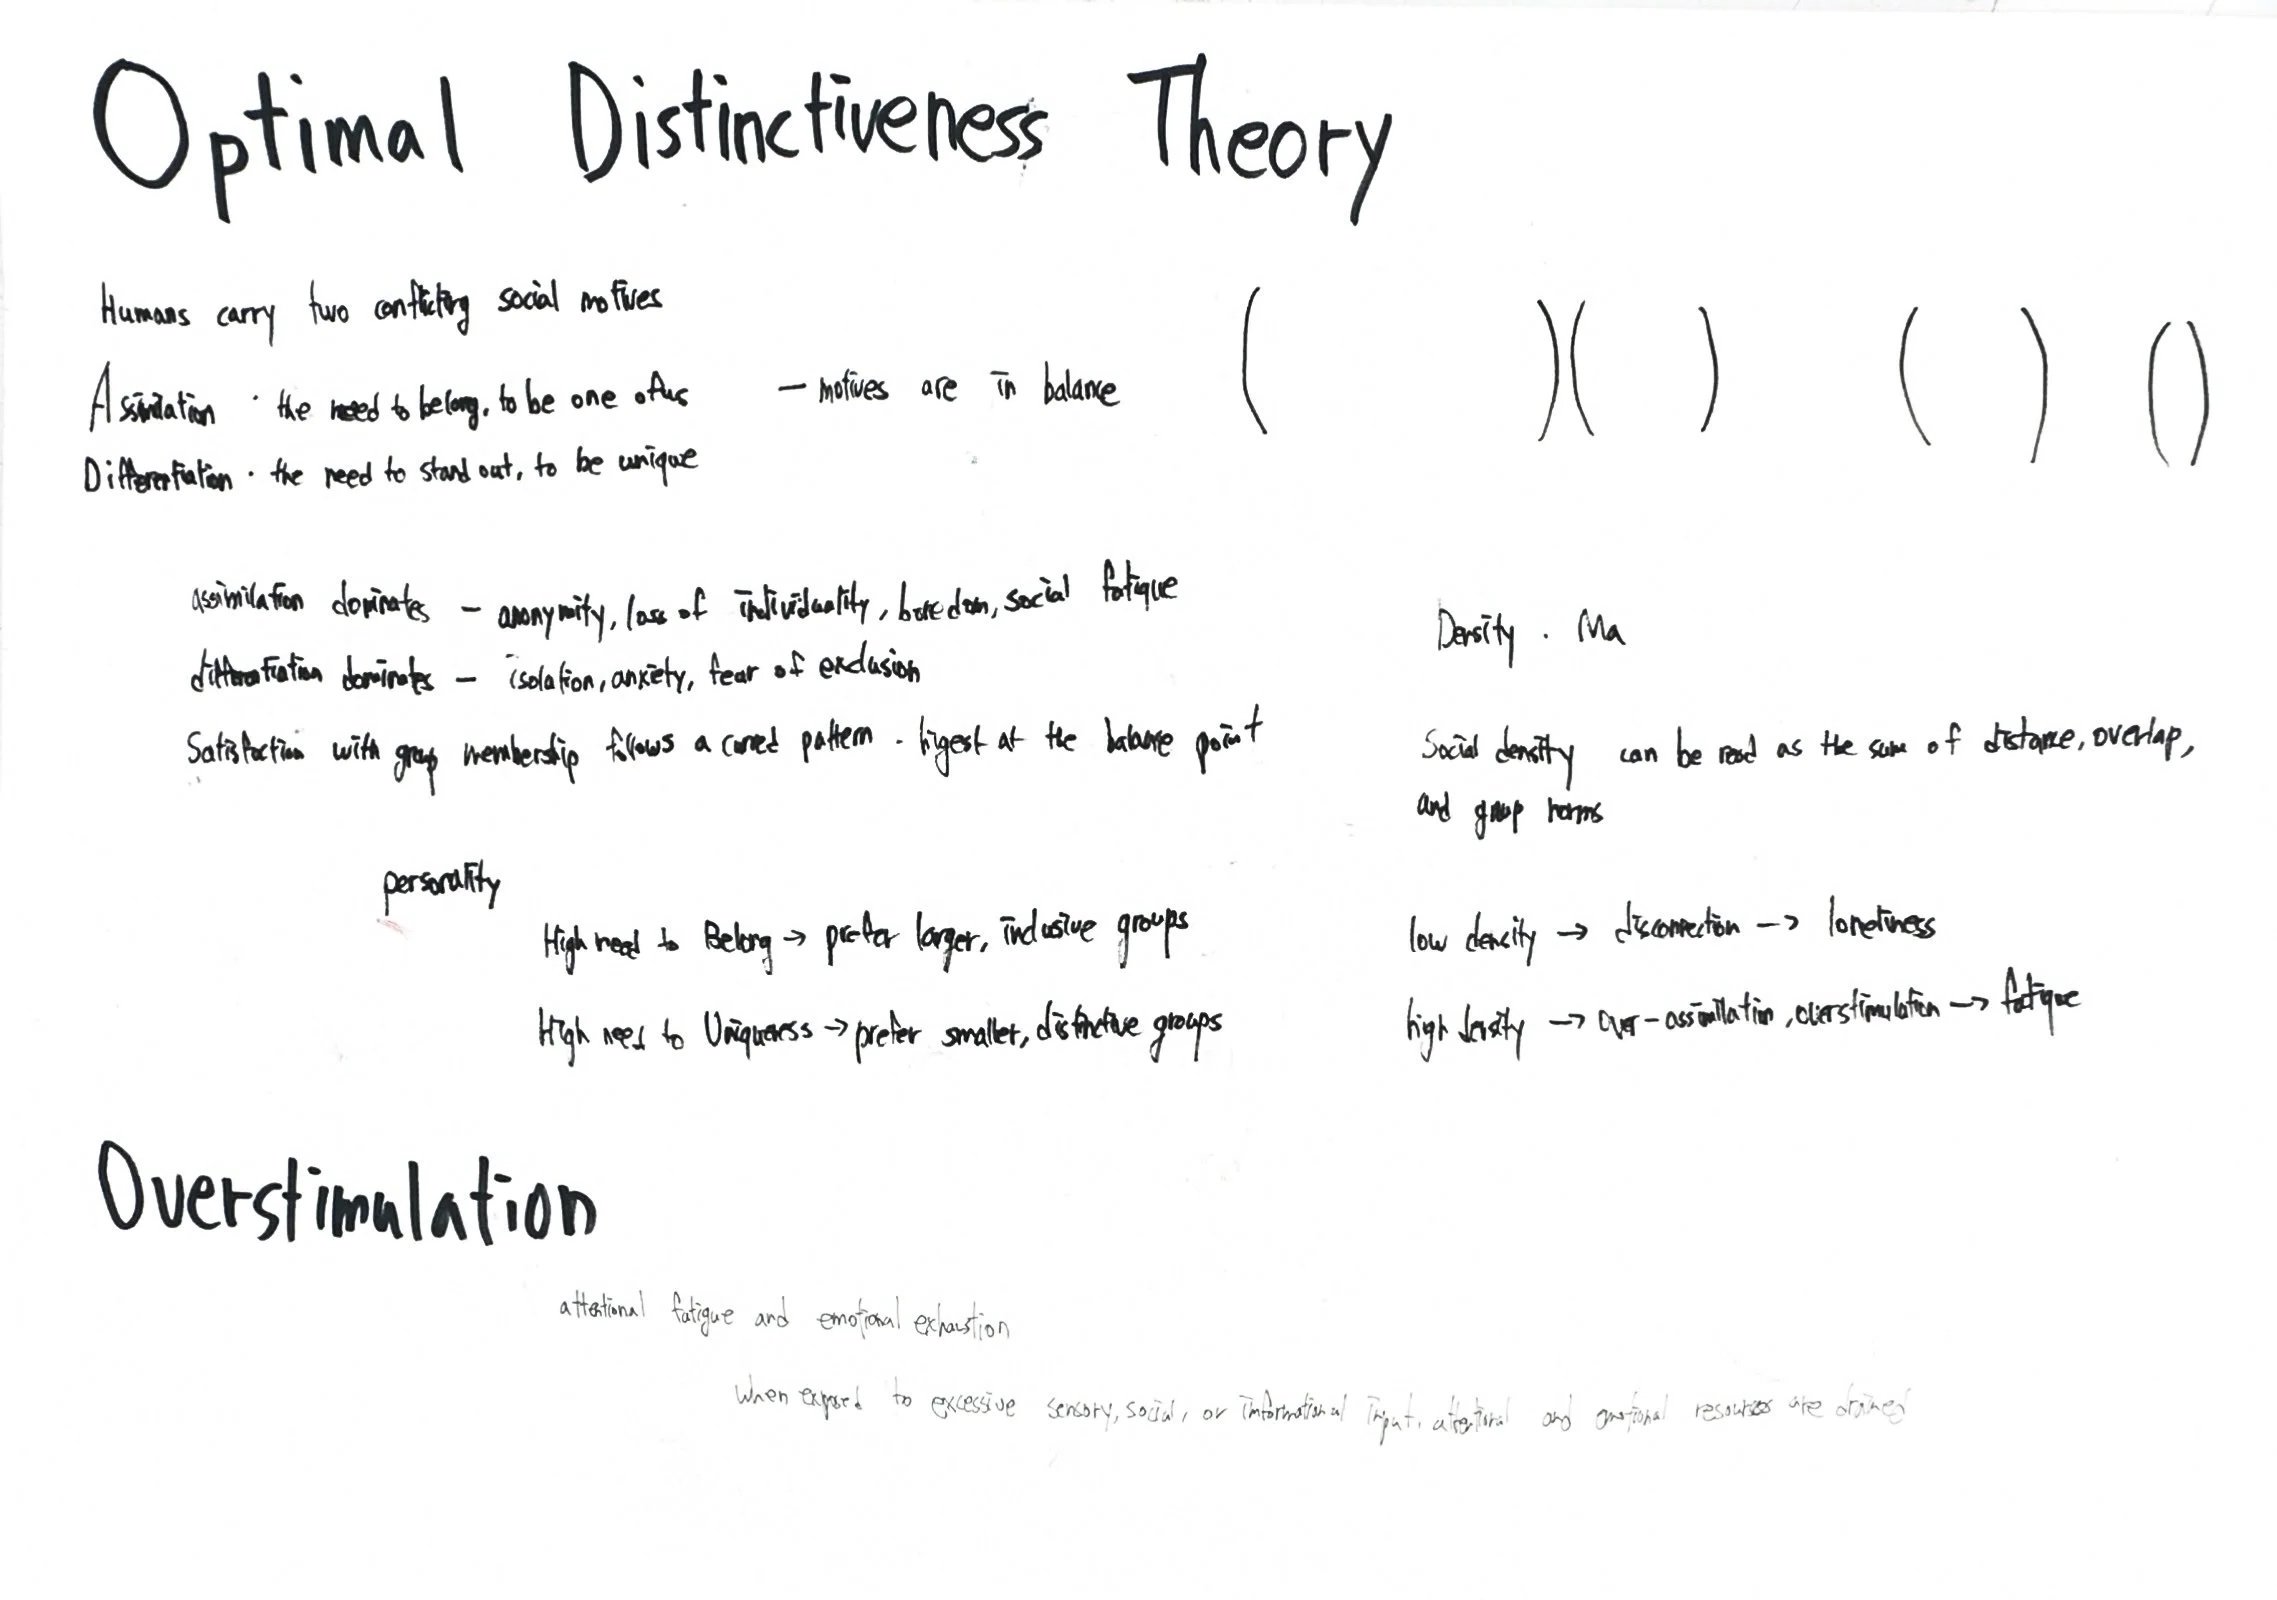 Optimal Distinctiveness Theory
Humans carry two conflicting social motives
Assimilation · the need to belong, to be one of us — motives are in balance
Differentiation · the need to stand out, to be unique
( )( ) ( ) ()
assimilation dominates — anonymity, loss of individuality, boredom, social fatigue
differentiation dominates — isolation, anxiety, fear of exclusion
Satisfaction with group membership follows a curved pattern · higest at the balance point
personality
High need to Belong → prefer larger, inclusive groups
High need to Uniqueness → prefer smaller, distinctive groups
Density · Ma
Social density can be read as the sum of distance, overlap,
and group norms
low density → disconnection → loneliness
high density → over-assimilation, overstimulation → fatigue
Overstimulation
attentional fatigue and emotional exhaustion
When exposed to excessive sensory, social, or informational input, attentional and emotional resources are drained